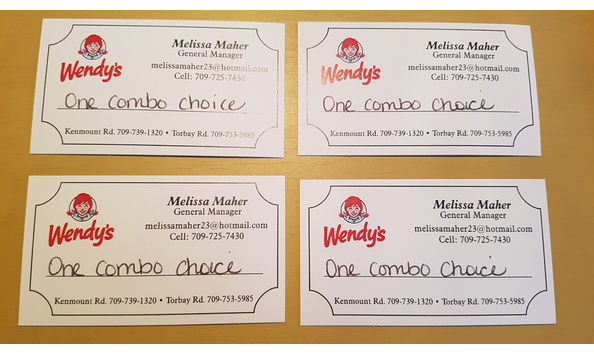 Melissa Maher
General Manager
melissamaher23@hotmail.com
Cell: 709-725-7430
Wendy's
One combo choice
Kenmount Rd. 709-739-1320 • Torbay Rd. 709-753-5985
Melissa Maher
General Manager
melissamaher23@hotmail.com
Cell: 709-725-7430
Wendy's
One combo choice
Kenmount Rd. 709-739-1320 • Torbay Rd. 709-753-5985
Melissa Maher
General Manager
melissamaher23@hotmail.com
Cell: 709-725-7430
Wendy's
One combo choice
Kenmount Rd. 709-739-1320 • Torbay Rd. 709-753-5985
Melissa Maher
General Manager
melissamaher23@hotmail.com
Cell: 709-725-7430
Wendy's
One combo choice
Kenmount Rd. 709-739-1320 • Torbay Rd. 709-753-5985